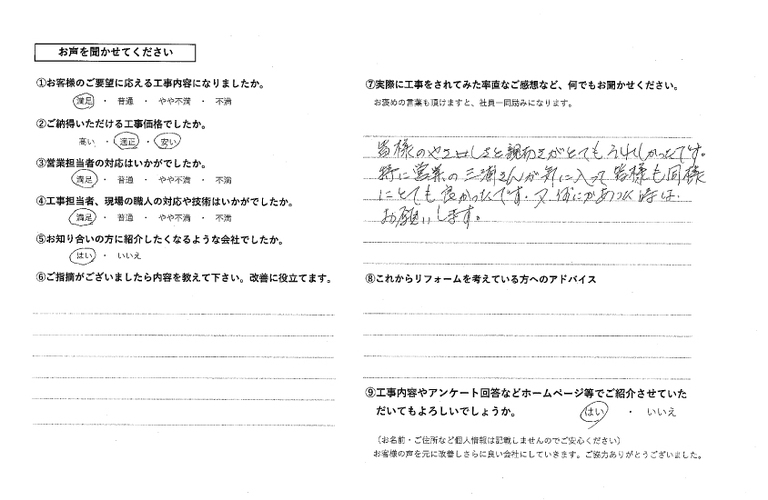 お声を聞かせてください
①お客様のご要望に応える工事内容になりましたか。
満足 ・ 普通 ・ やや不満 ・ 不満
②ご納得いただける工事価格でしたか。
高い ・ 適正 ・ 安い
③営業担当者の対応はいかがでしたか。
満足 ・ 普通 ・ やや不満 ・ 不満
④工事担当者、現場の職人の対応や技術はいかがでしたか。
満足 ・ 普通 ・ やや不満 ・ 不満
⑤お知り合いの方に紹介したくなるような会社でしたか。
はい ・ いいえ
⑥ご指摘がございましたら内容を教えて下さい。改善に役立てます。
⑦実際に工事をされてみた率直なご感想など、何でもお聞かせください。
お褒めの言葉も頂けますと、社員一同励みになります。
皆様のやさしさと親切さがとてもうれしかったです。
特に営業の三浦さんが気に入って 皆様も同様
にとても良かったです。又何かあった時は、
お願いします。
⑧これからリフォームを考えている方へのアドバイス
⑨工事内容やアンケート回答などホームページ等でご紹介させていた
だいてもよろしいでしょうか。 はい ・ いいえ
（お名前・ご住所など個人情報は記載しませんのでご安心ください）
お客様の声を元に改善しさらに良い会社にしていきます。ご協力ありがとうございました。